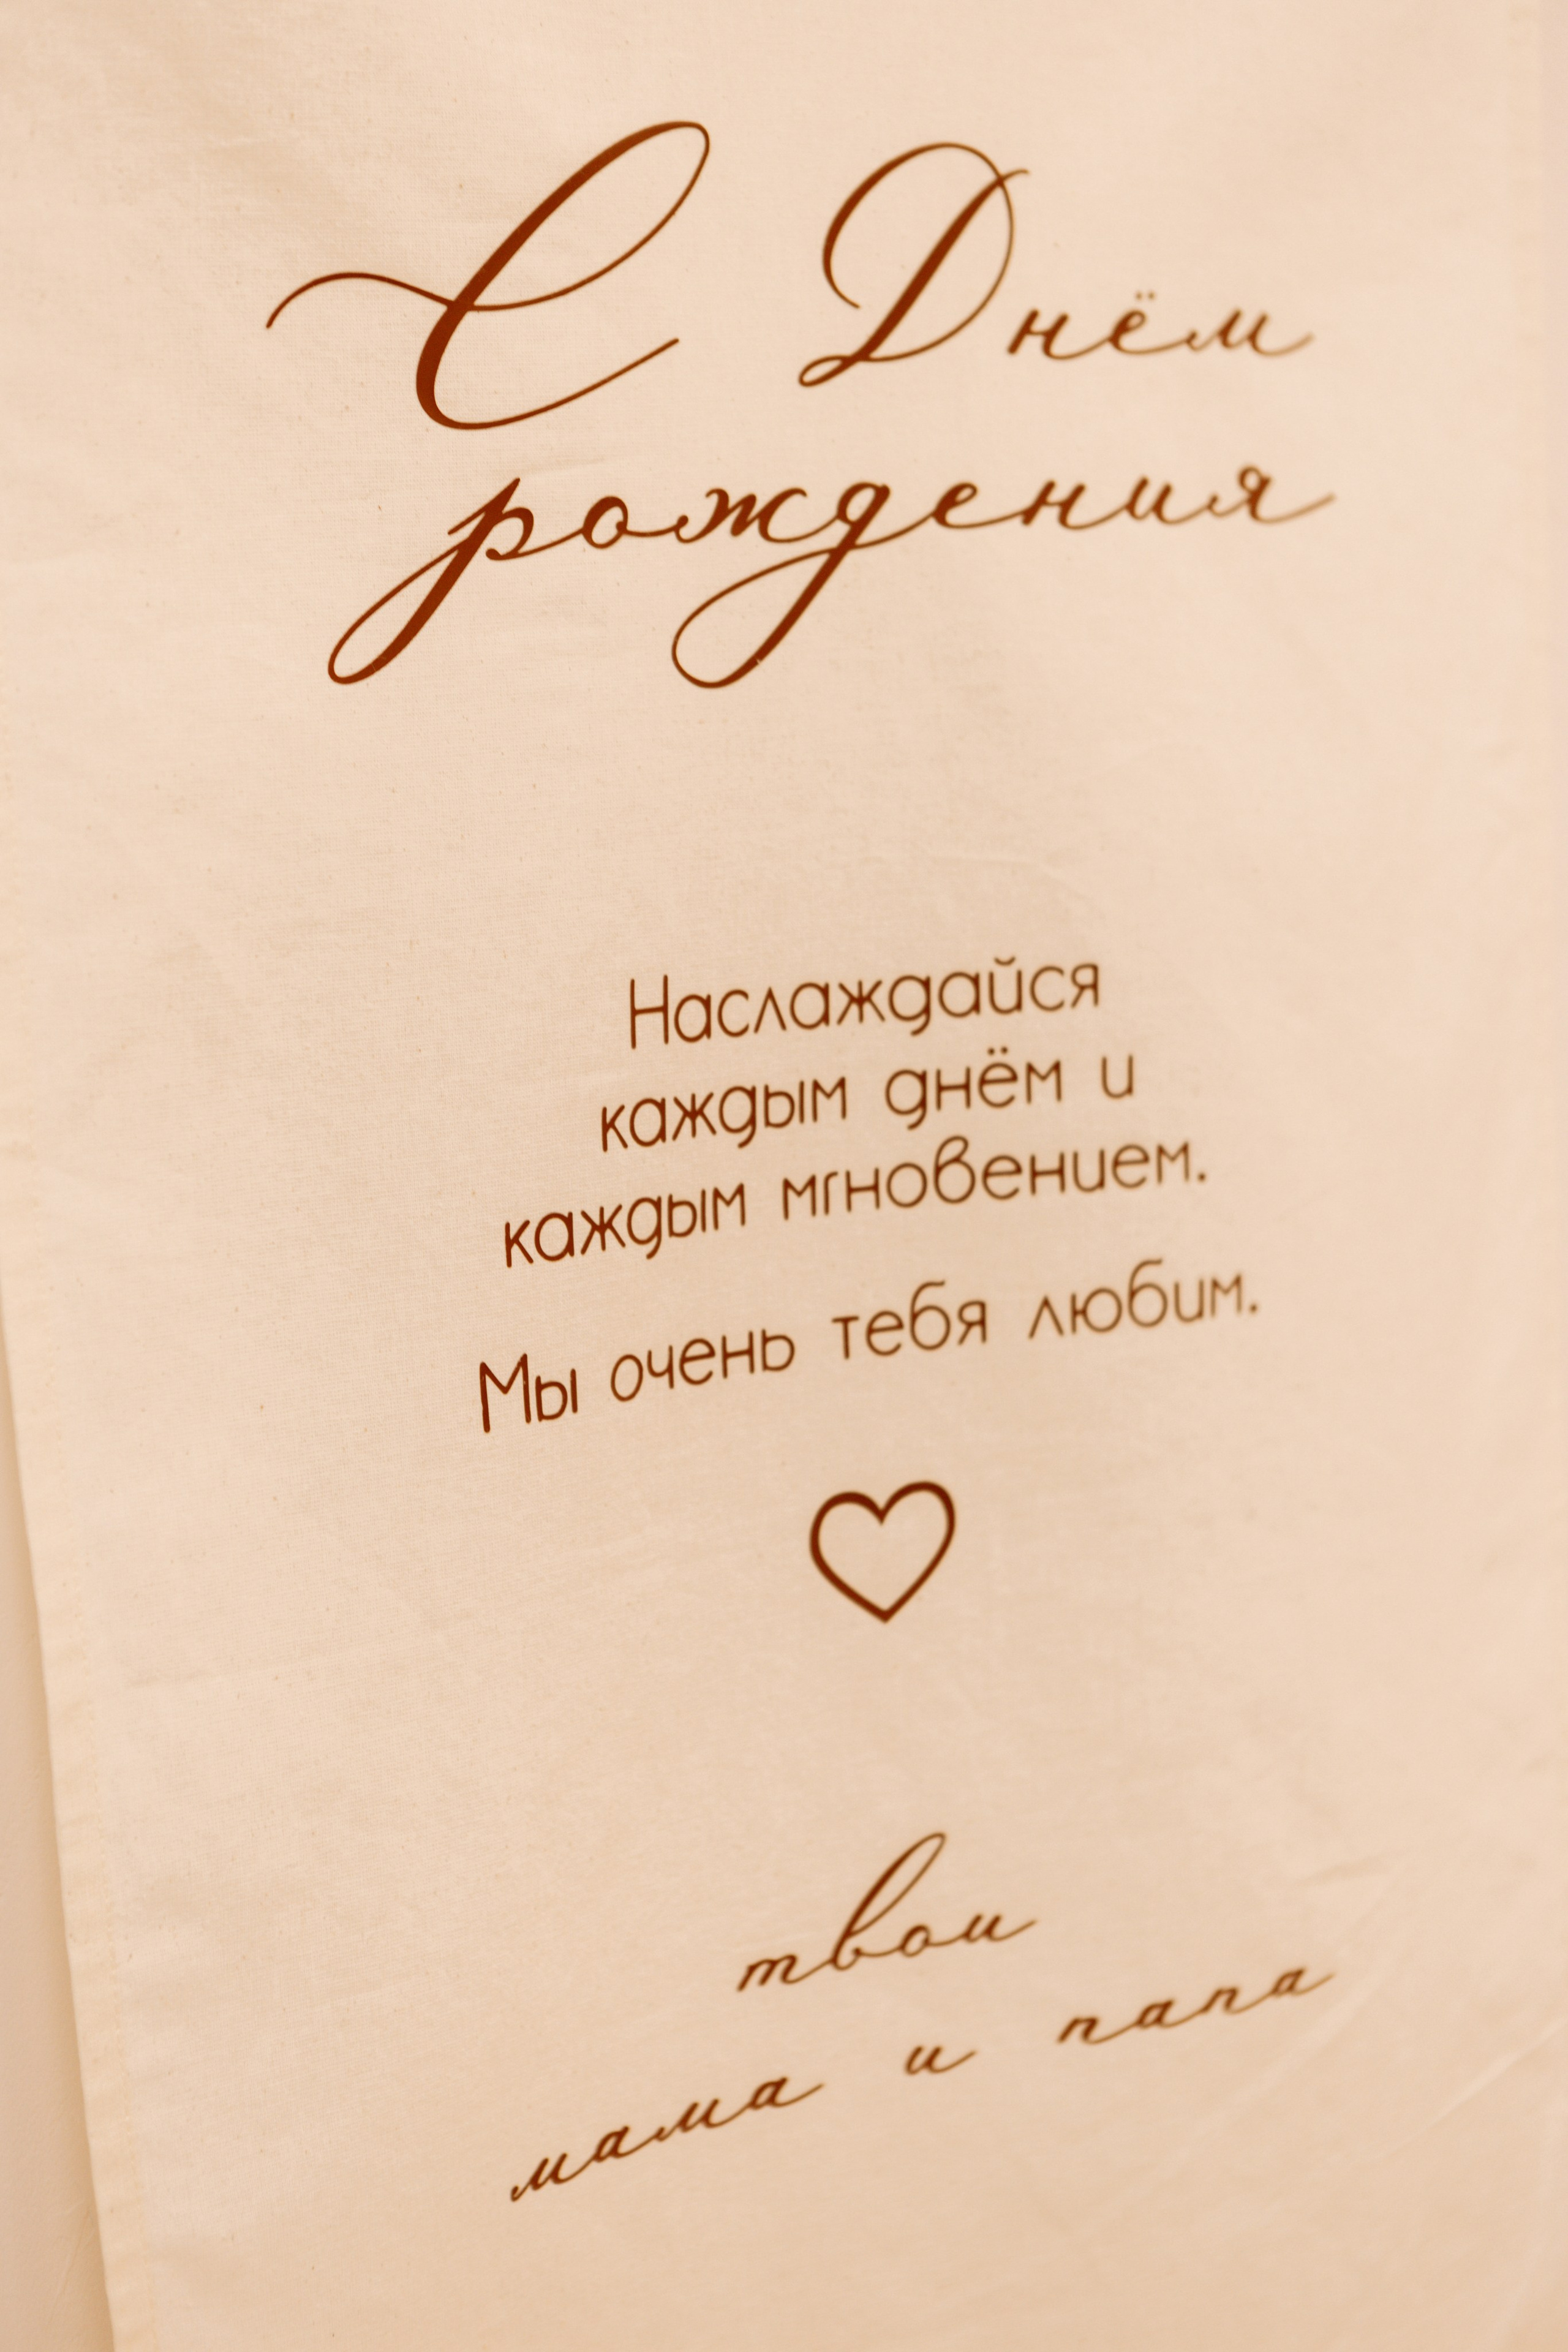 С Днём
рождения
Наслаждайся
каждым днём и
каждым мгновением.
Мы очень тебя любим.
твои
мама и папа